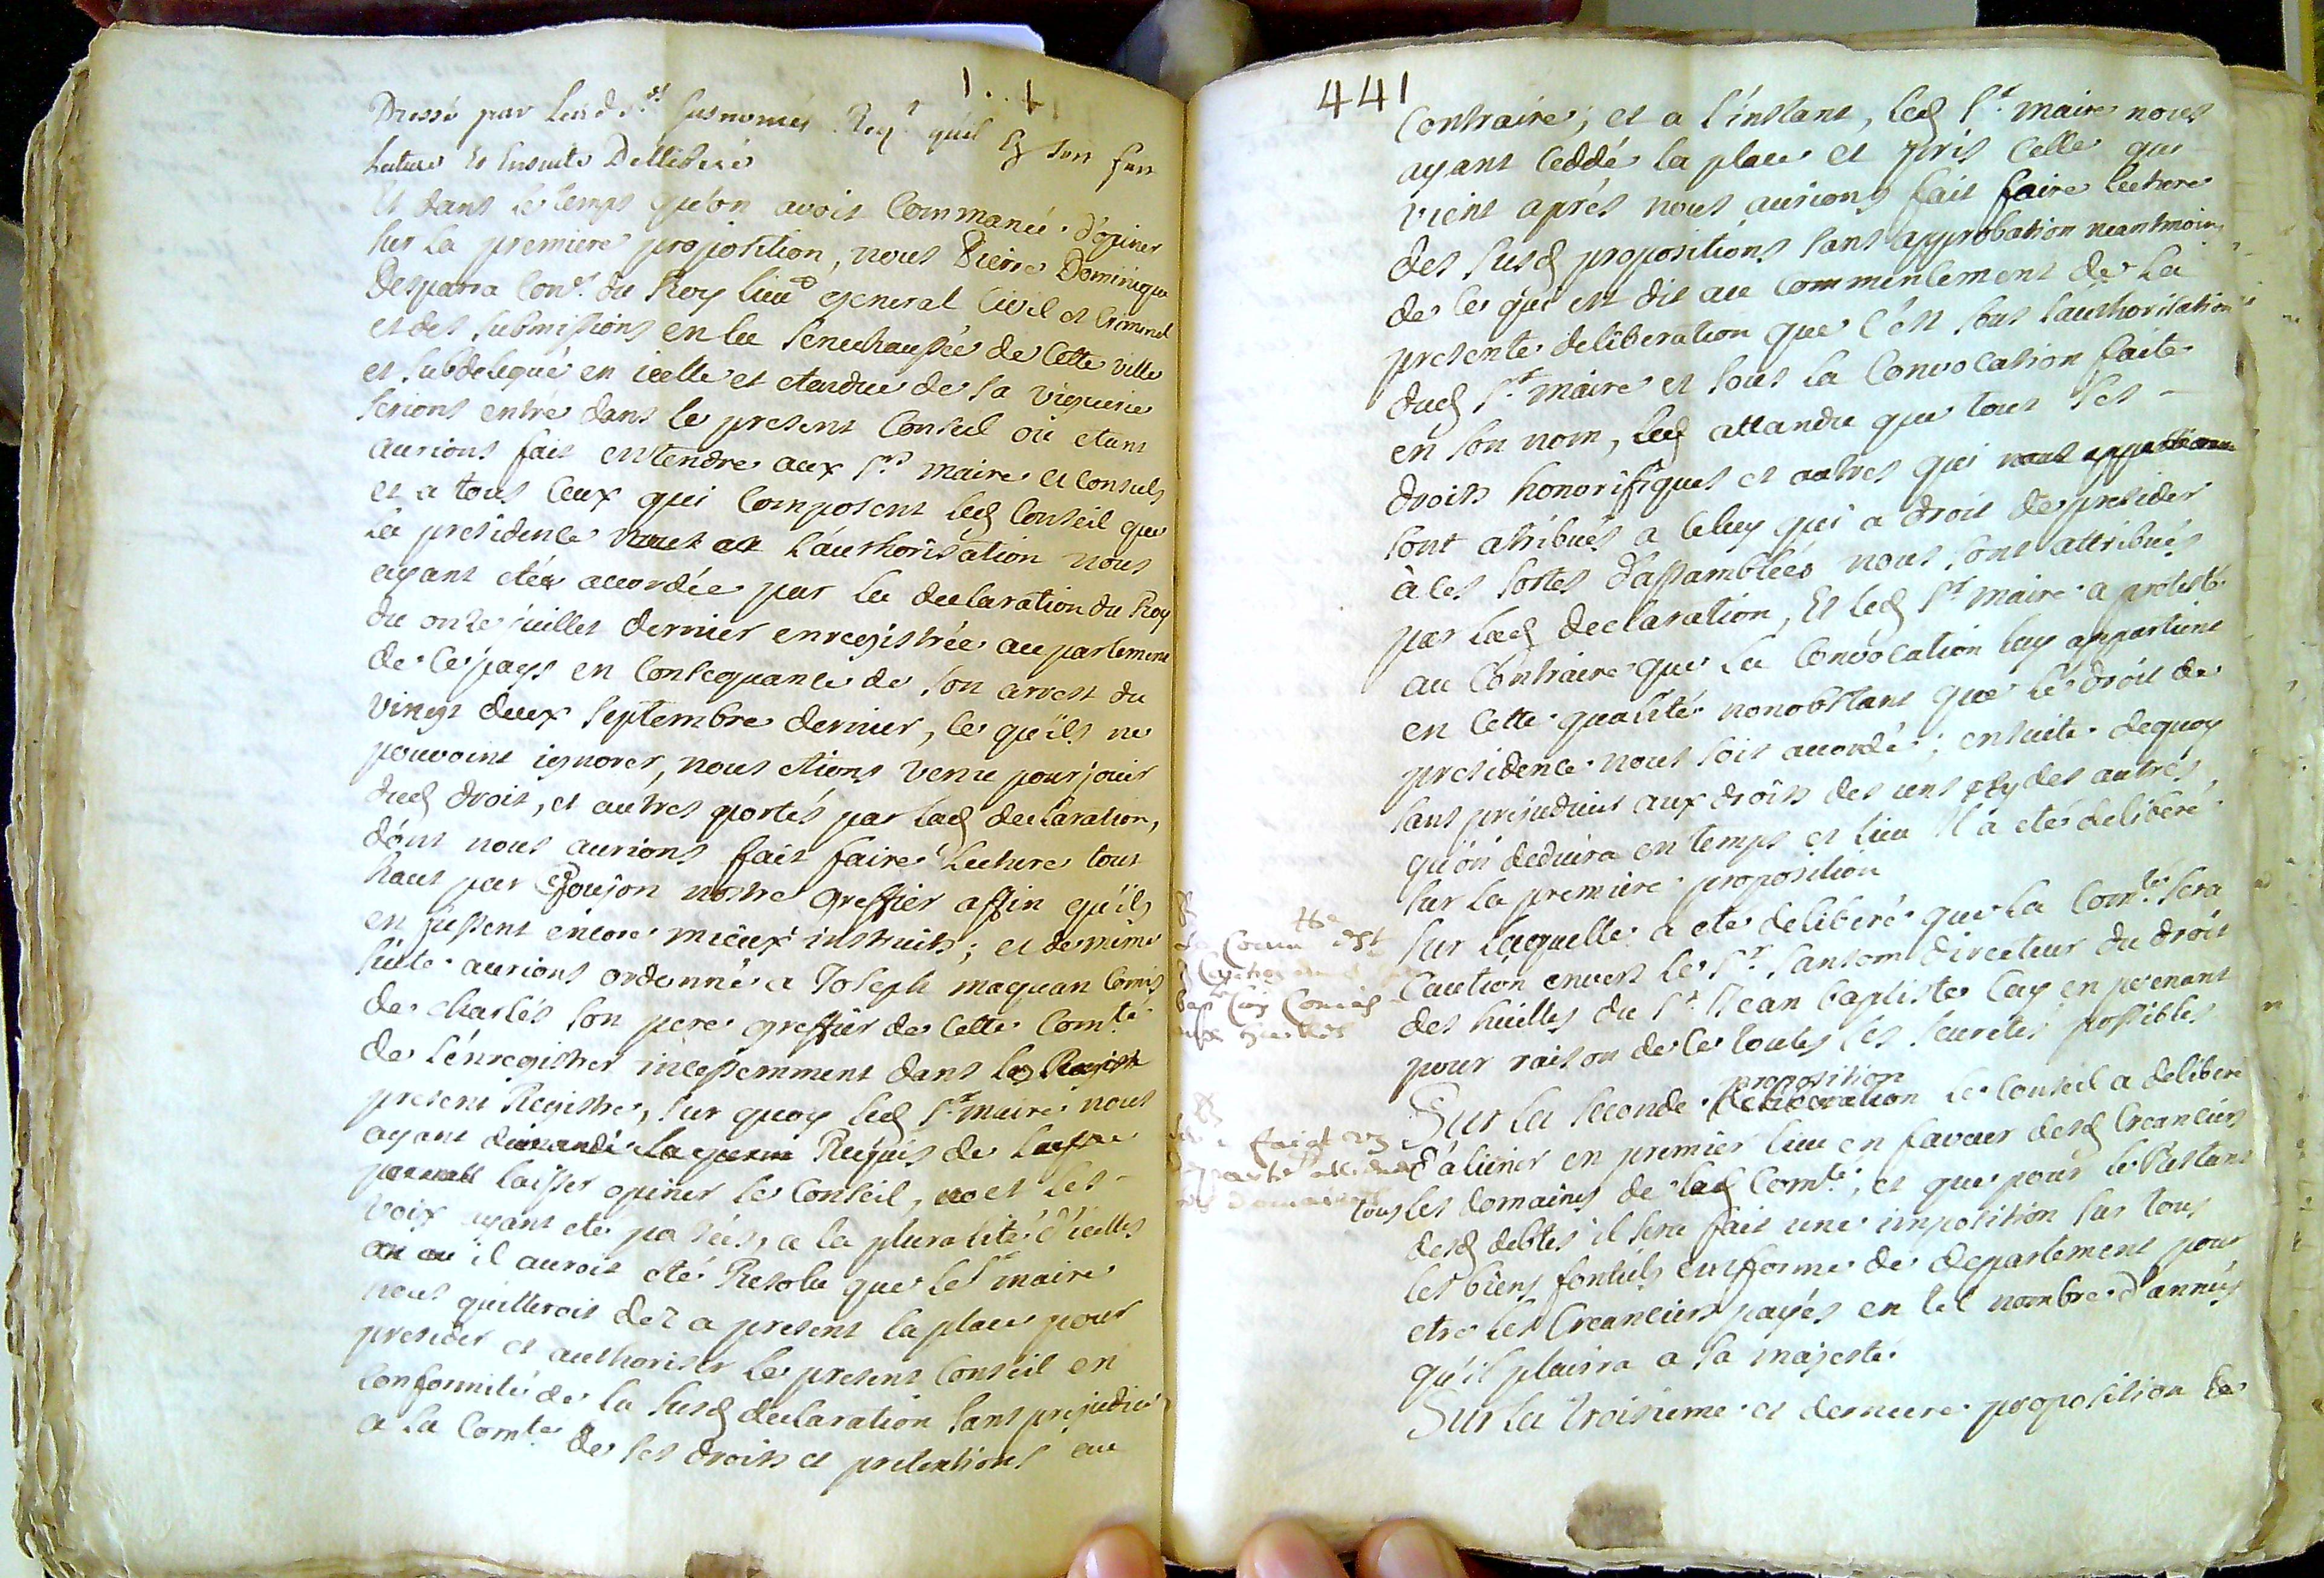 Dressé par lesd. srs susnomés Reqt. quil en son fan
Lecture Et Ensuite Délliberé
Et dans le temps qu'on avoit Commancé d'opiner
sur la premiere proposition, nous Pierre Dominique
Desparra Conr. du Roy lieut general Civil et Criminel
et des submissions en la Senechaussée de Cette ville
et subdelegué en icelle et etendue de sa viguerie
serions entré dans le present Conseil où etant
aurions fait entendre aux srs maire et Consuls
et a tous Ceux qui Composent led Conseil que
la presidence et l'authorisation nous
ayant etée accordée par la declaration du Roy
du onze juillet dernier enregistrée au parlement
de Ce pays en Consequance de son arrest du
vingt deux septembre dernier, Ce qu'ils ne
pouvoint ignorer, nous etions venu pour jouir
dud droit, et autres portés par lad declaration,
dont nous aurions fait faire Lecture tout
haut par Goujon nostre greffier affin qu'ils
en fussent encore mieux instruits; et de même
suite aurions ordonné a Joseph maquan Comis
de charles son pere greffier de Cette Comté.
de l'énregistrer incessemment dans le
present Registre, sur quoy led sr. maire nous
ayant Requis de
laisser opiner le Conseil, et les
voix ayant eté pa sées, a la pluralité d'icelles
il auroit eté Resolu que le sr maire
nous quitteroit dez a present la place pour
presider et authoriser le present Conseil en
Conformité de la susd declaration sans prejudice
a la Comté. de ses droits et pretentions au
441
Contraire; et a l'instant, led sr. maire nous
ayant Ceddé la place et pris Celle qui
vient aprés nous aurions fait faire lecture
des susd propositions sans approbation neantmoins
de Ce qui est dit au Commencement de la
presente deliberation que C'est sous l'authorisation
dud sr. maire et sous la Convocation faite
en son nom, led attandu que tous les
droits honorifiques et autres qui
sont atribués a Celuy qui a droit de presider
à Ces sortes d'assamblées nous sont attribués
par lad declaration, Et led sr maire a protesté
au Contraire que la Convocation luy appartient
en Cette qualité nonobstant que le droit de
presidence nous soit accordé; ensuite dequoy
sans prejudice aux droits des uns et des autres
qu'on deduira en temps et lieu Il a eté deliberé
sur la premiere proposition
sur laquelle a eté deliberé que la Comté. sera
Caution envers le sr. sansom directeur du droit
des huilles du sr. Jean baptiste Luy en prenant
pour raison de Ce toutes les seuretés possibles
Sur la seconde proposition le Conseil a deliberé
d'aliener en premier lieu en faveur desd Creanciers
tous les domaines de lad Comté., et que pour le Restant
desd debtes il sera fait une imposition sur tous
les biens fonciers en forme de departement pour
etre les Creanciers payés en tel nombre d'années
qu'il plairra a sa majesté.
Sur la troisieme et derniere proposition le